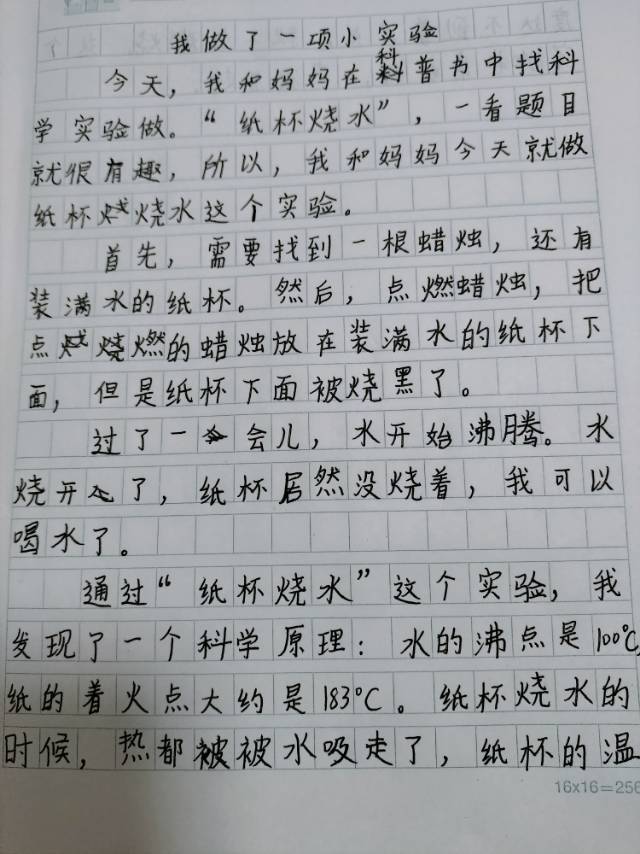 我做了一项小实验
今天，我和妈妈在科普书中找科
学实验做。“纸杯烧水”，一看题目
就很有趣，所以，我和妈妈今天就做
纸杯烧水这个实验。
首先，需要找到一根蜡烛，还有
装满水的纸杯。然后，点燃蜡烛，把
点燃的蜡烛放在装满水的纸杯下
面，但是纸杯下面被烧黑了。
过了一会儿，水开始沸腾。水
烧开了，纸杯居然没烧着，我可以
喝水了。
通过“纸杯烧水”这个实验，我
发现了一个科学原理：水的沸点是100℃，
纸的着火点大约是183℃。纸杯烧水的
时候，热都被水吸走了，纸杯的温
16x16=256